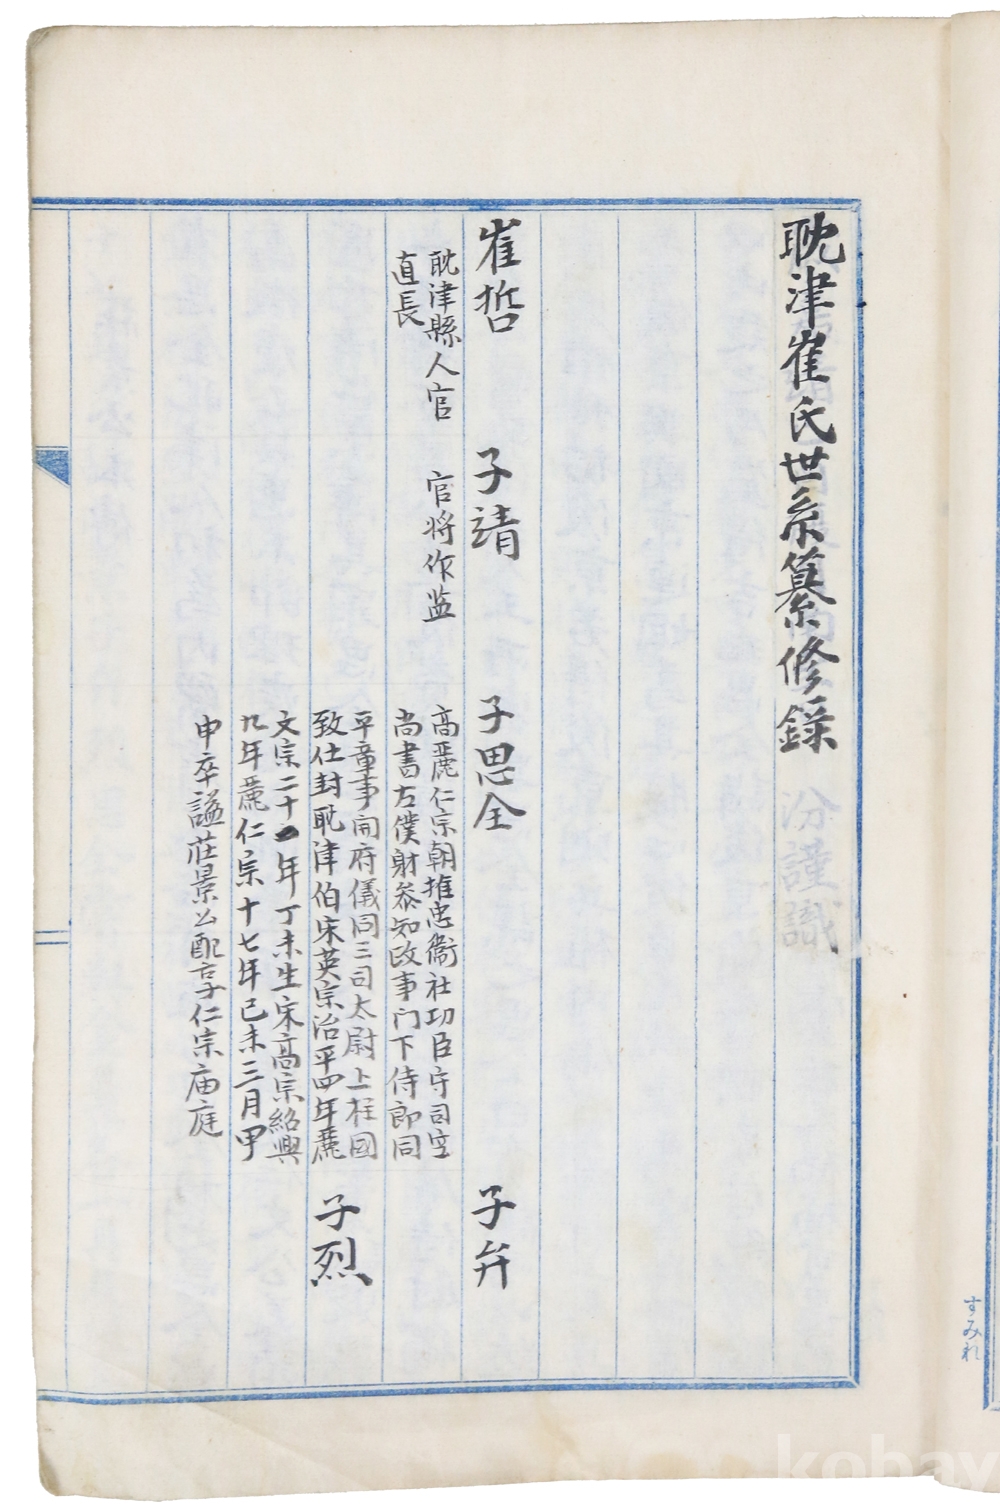 耽津崔氏世系纂修録
汾謹識
崔哲
耽津縣人官
直長
子靖
官将作监
子思全
高麗仁宗朝推忠衞社功臣守司空
尚書左僕射叅知政事门下侍郎同
平章事開府儀同三司太尉上柱國
致仕封耽津伯宋英宗治平四年麗
文宗二十一年丁未生宋高宗紹興
九年麗仁宗十七年己未三月甲
申卒謚莊景公配享仁宗庙庭
子弁
子烈
すみれ
kobay